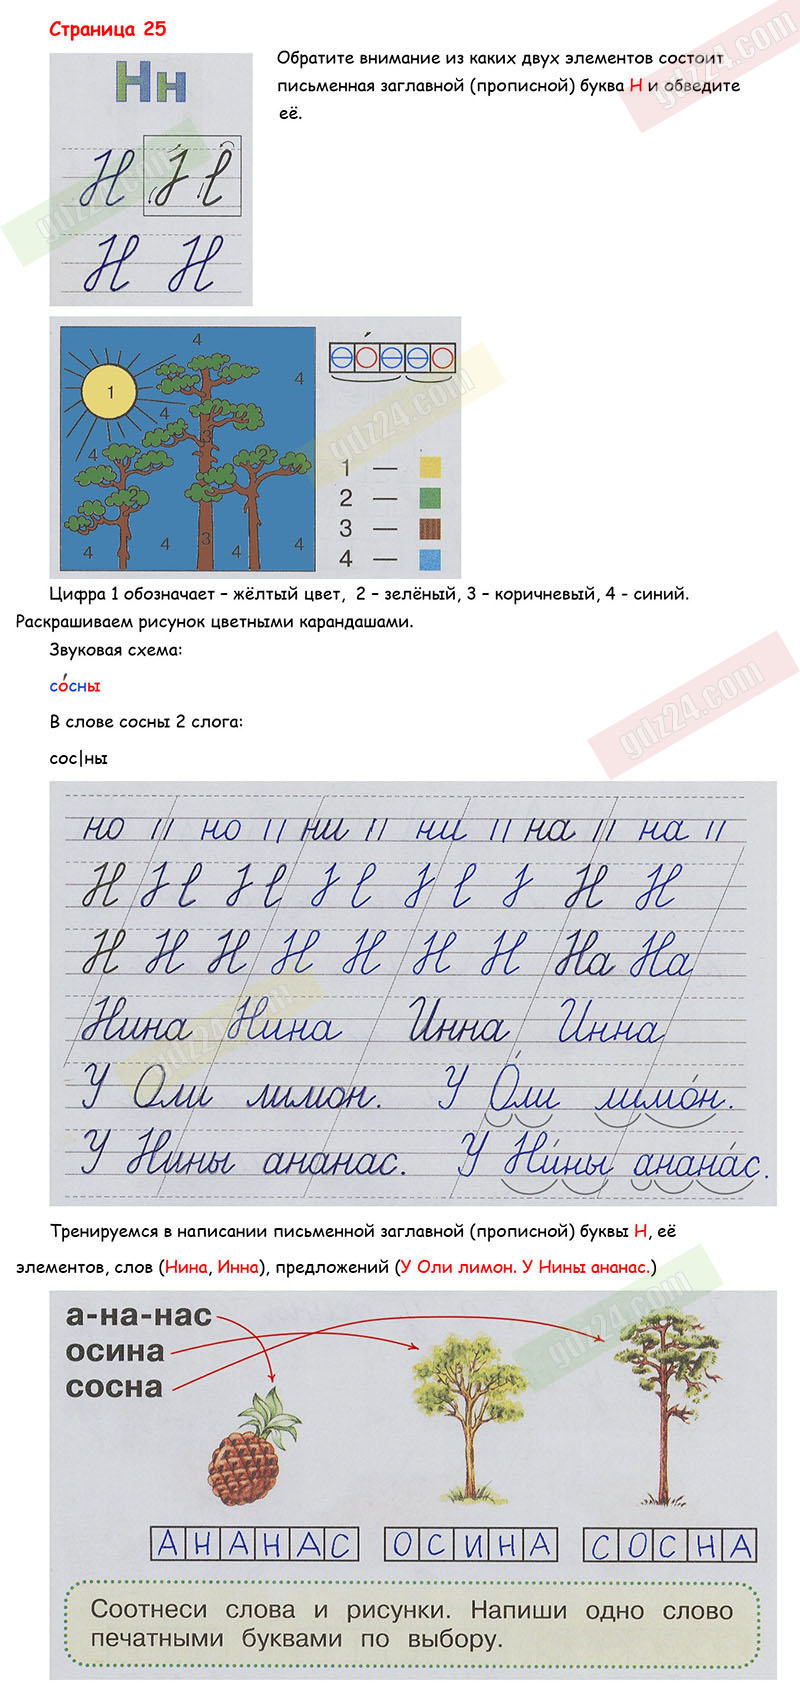 Страница 25
Обратите внимание из каких двух элементов состоит
письменная заглавной (прописной) буква Н и обведите
её.
Нн
Н Н
Н Н
4
4
1
4
3
4
2
2
4 4 3 4 4
1 —
2 —
3 —
4 —
Цифра 1 обозначает – жёлтый цвет, 2 – зелёный, 3 – коричневый, 4 - синий.
Раскрашиваем рисунок цветными карандашами.
Звуковая схема:
со́сны
В слове сосны 2 слога:
сос|ны
но но ни ни на на
Н Н Н
Н Н Н Н Н Н Н На На
Нина Нина Инна Инна
У Оли лимон. У О́ли лимо́н.
У Нины ананас. У Ни́ны анана́с.
Тренируемся в написании письменной заглавной (прописной) буквы Н, её
элементов, слов (Нина, Инна), предложений (У Оли лимон. У Нины ананас.)
а-на-нас
осина
сосна
АНАНАС ОСИНА СОСНА
Соотнеси слова и рисунки. Напиши одно слово
печатными буквами по выбору.
gdz24.com
gdz24.com
gdz24.com
gdz24.com
gdz24.com
gdz24.com